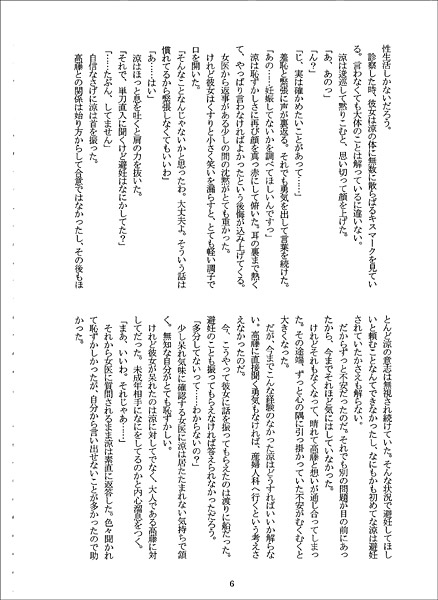 性生活しかないだろう。
　診察した時、彼女は涼の体に無数に散らばるキスマークを見てい
る。言わなくても大体のことは解っているに違いない。
「あ、あのっ」
　涼は逡巡して黙りこむと、思い切って顔を上げた。
「ん？」
「じ、実は確かめたいことがあって……」
　羞恥と緊張に声が裏返る。それでも勇気を出して言葉を続けた。
「あの……妊娠してないかを調べてほしいんですっ」
　涼は恥ずかしさに再び顔を真っ赤にして俯いた。耳の裏まで熱く
て、やっぱり言わなければよかったという後悔が込み上げてくる。
　女医から返事がある少しの間の沈黙がとても重かった。
　けれど彼女はくすりと小さく笑いを漏らすと、とても軽い調子で
口を開いた。
「そんなことなんじゃないかと思ったわ。大丈夫よ。そういう話は
慣れてるから緊張しなくてもいいわ」
「あ……はい」
　涼はほっと息を吐くと肩の力を抜いた。
「それで、単刀直入に聞くけど避妊はなにかしてた？」
「……たぶん、してません」
　自信なさげに涼は首を振った。
　高藤との関係は始り方からして合意ではなかったし、その後もほ
とんど涼の意志は無視され続けていた。そんな状況で避妊してほし
いと頼むことなんてできなかったし、なにもかも初めてな涼は避妊
されていたかさえも解らない。
　だからずっと不安だったのだ。それでも別の問題が目の前にあっ
たから、今までそれほど気にはしていなかった。
　けれどそれもなくなって、晴れて高藤と想いが通じ合ってしまっ
た。その途端、ずっと心の隅に引っ掛かっていた不安がむくむくと
大きくなった。
　だが、今までこんな経験のなかった涼はどうすればいいか解らな
い。高藤に直接聞く勇気もなければ、産婦人科へ行くという考えさ
えなかったのだ。
　今、こうやって彼女に話を振ってもらえたのは渡りに船だった。
避妊のことも振ってもらえなければ答えられなかっただろう。
「多分してないって……わからないの？」
　少し呆れ気味に確認する女医に涼は居たたまれない気持ちで頷
く。無知な自分がとても恥ずかしい。
　けれど彼女が呆れたのは涼に対してでなく、大人である高藤に対
してだった。未成年相手になにをしてるのかと内心溜息をつく。
「まあ、いいわ。それじゃあ……」
　それから女医に質問されるまま涼は素直に返答した。色々聞かれ
て恥ずかしかったが、自分から言い出せないことが多かったので助
かった。
6